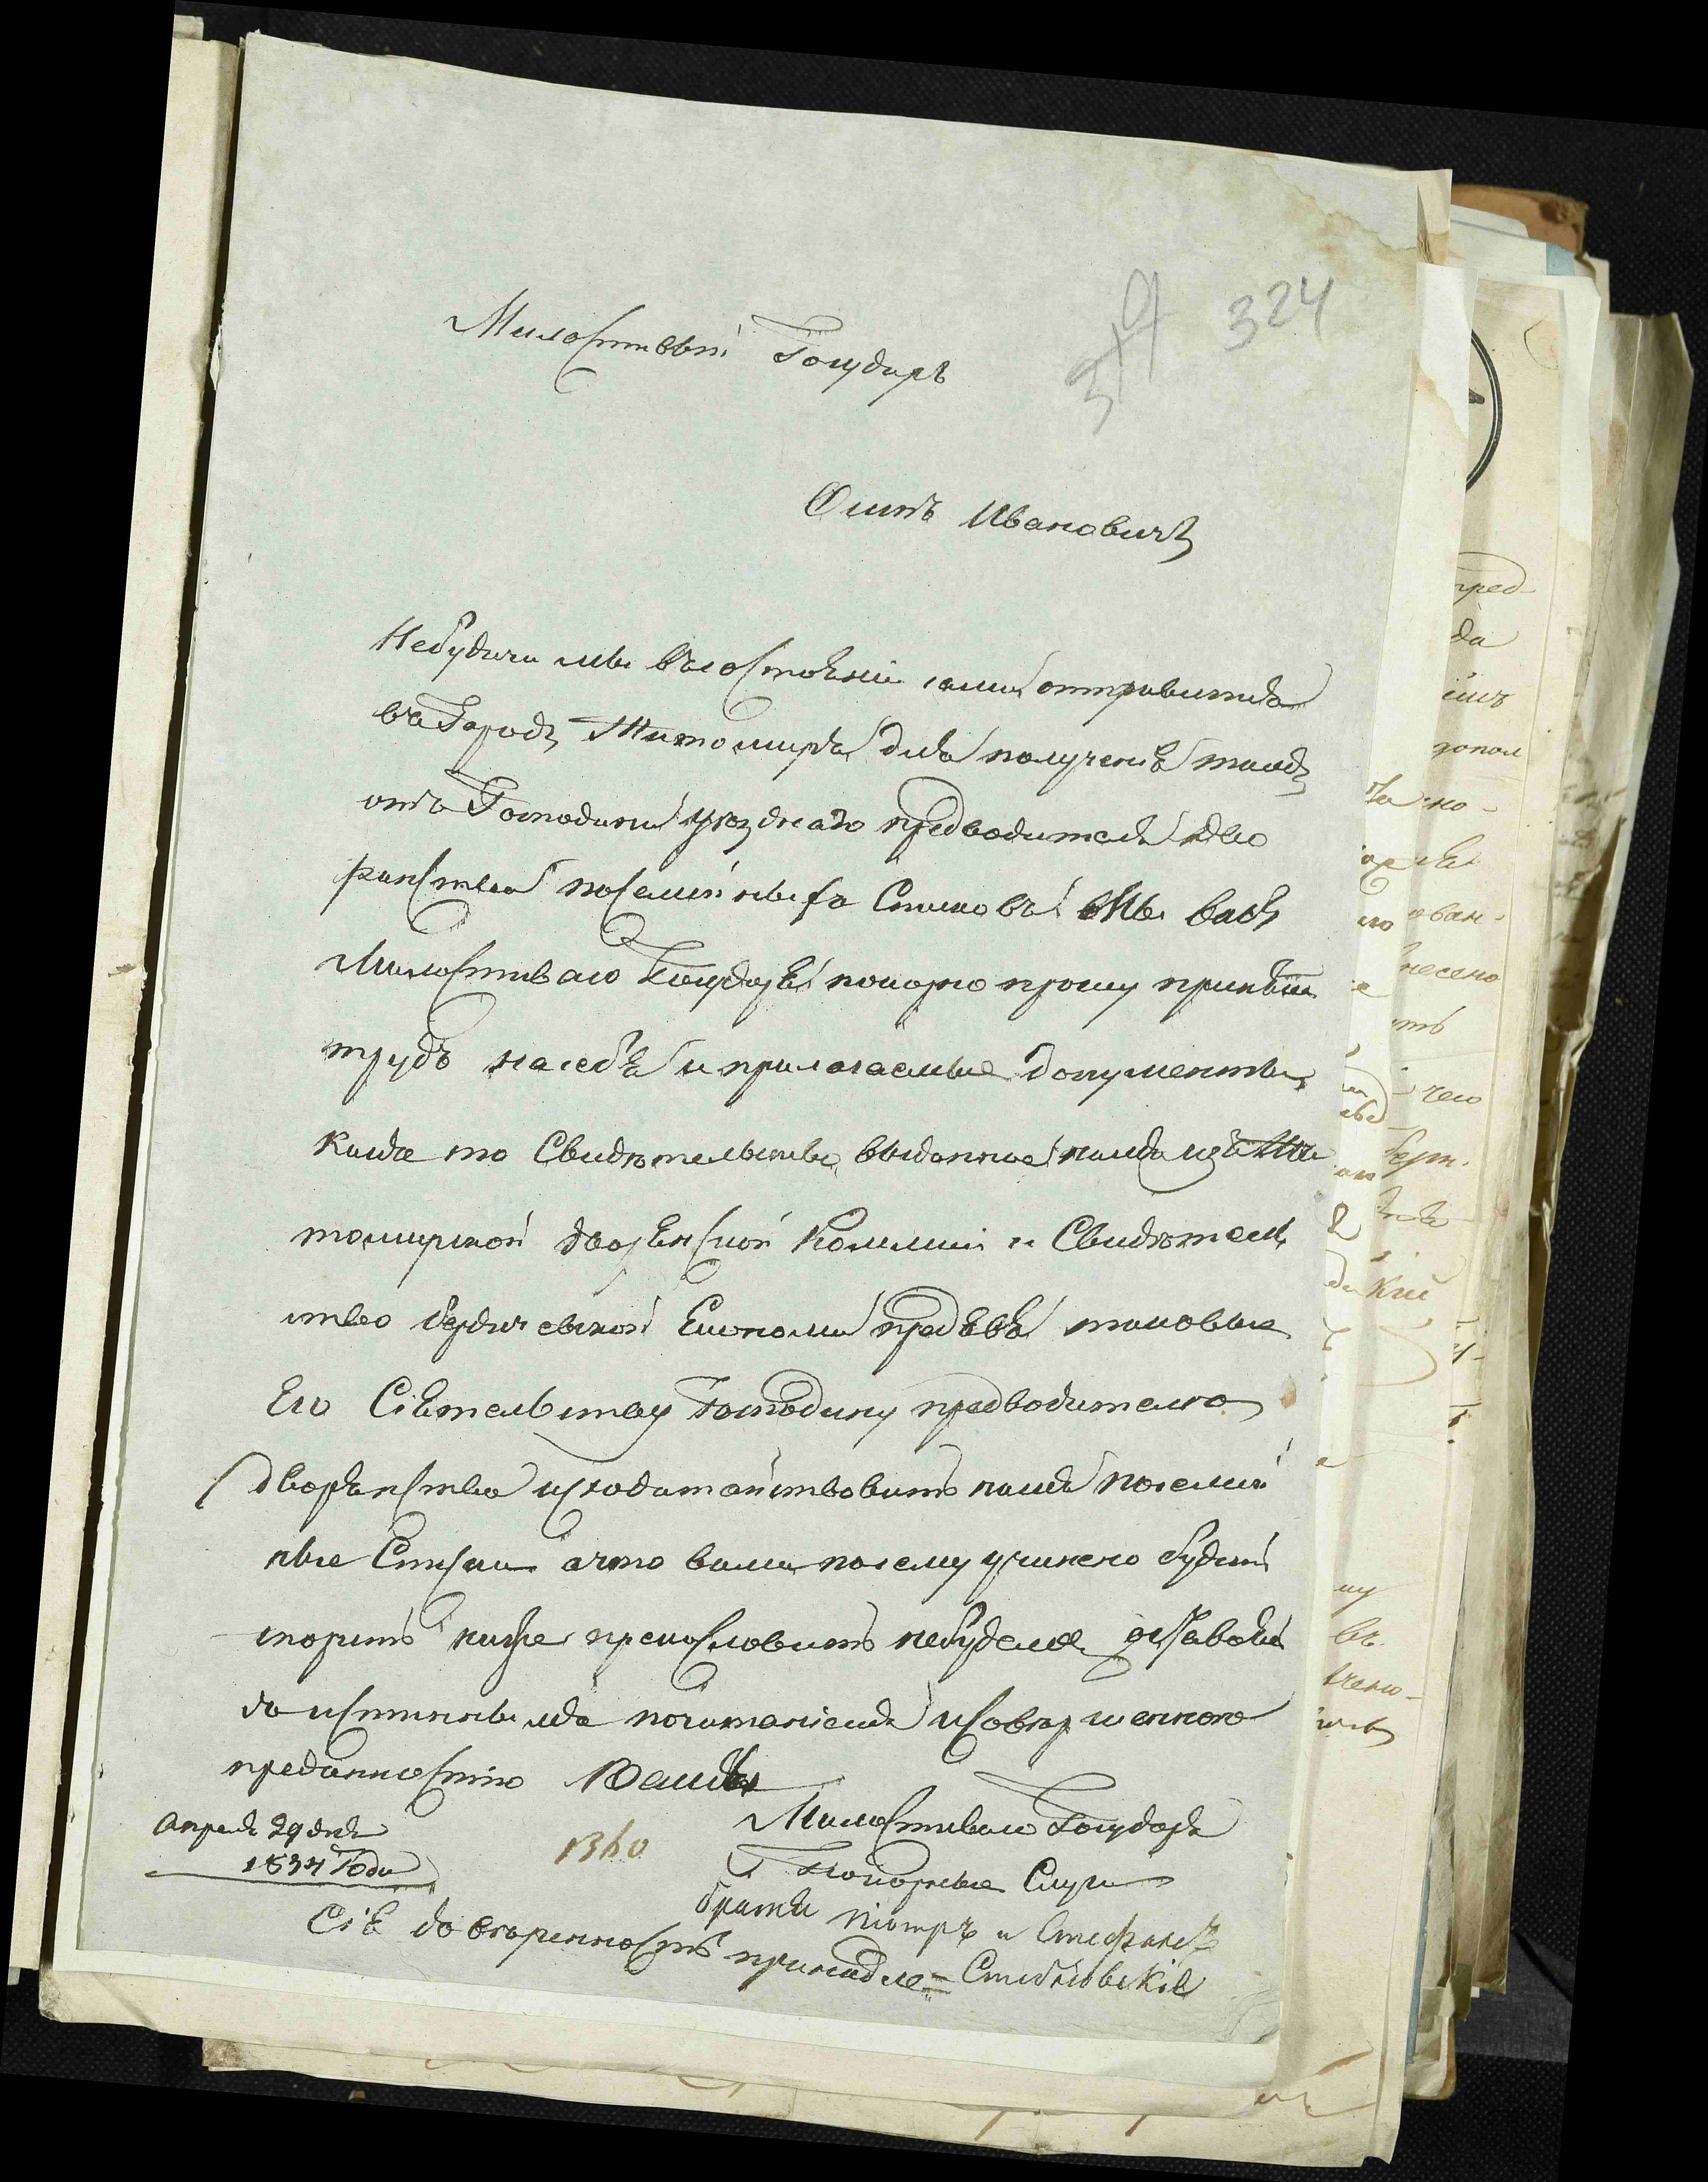 324
Милостивый Государь
Осипъ Ивановичъ
Небудучи мы въсостоянии сами отправится
въ Городъ Житомиръ для полученя
отъ Господина уезднаго предводителя дво
рянства посемейныхъ Списковъ васъ
Милостиваго Государя покорно прошу принять
трудъ насебя и прилагаемые документы
какъ то Свидетельство выданное намъ изъ Жи
томирской дворянской Комисии и Свидетель
ство бердичевской Економии предявя таковые
Его Сіятельству Господину предводителю
дворянства исходатайствовать намъ посемей
ные Списки ачто вами посему учинено будетъ
спорить ниже прекословить небудемъ
съ истиннымъ почитаніемъ исовершенною
преданностію Вашъ
Милостиваго Государя
Покорные Слуги
братья Піотръ и Стефанъ
Апреля 29 дня
1834 Года
1360
Сія доверенность принадле=